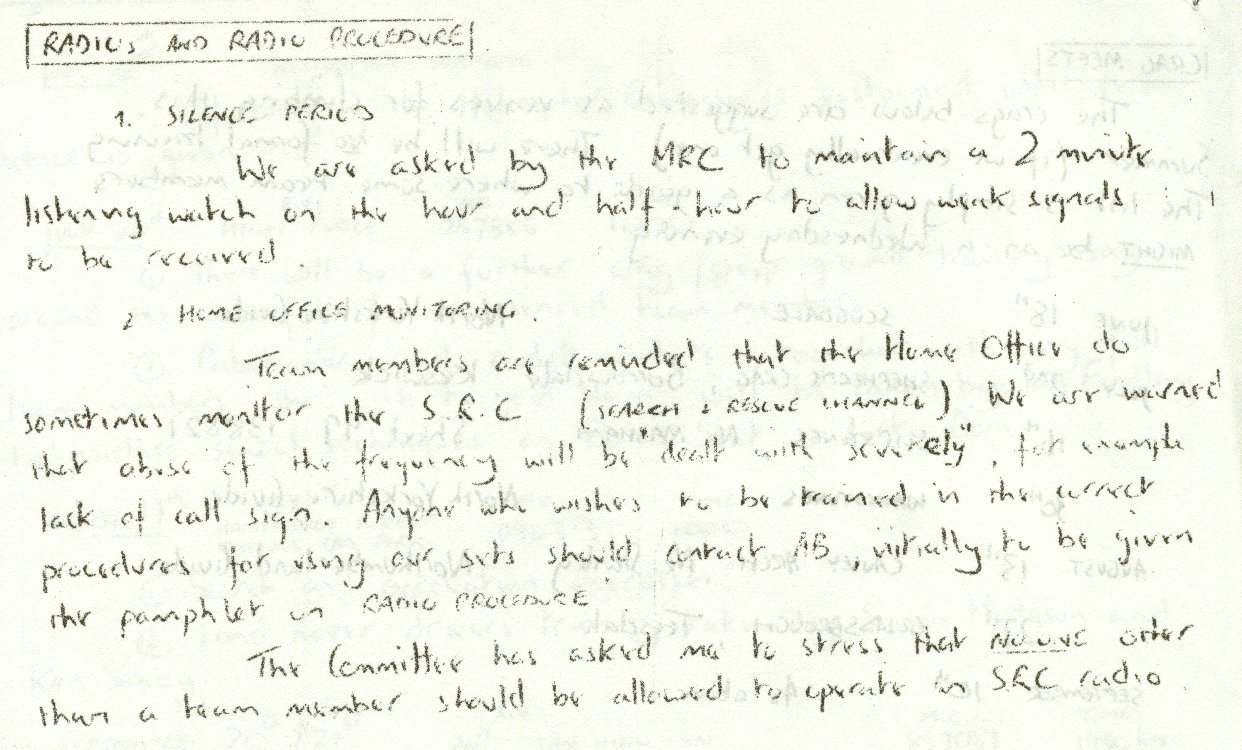 RADIOS AND RADIO PROCEDURE
1. SILENCE PERIOD
We are asked by the MRC to maintain a 2 minute
listening watch on the hour and half hour to allow weak signals
to be received.
2 HOME OFFICE MONITORING.
Team members are reminded that the Home Office do
sometimes monitor the S.R.C (SEARCH & RESCUE CHANNEL) We are warned
that abuse of the frequency will be "dealt with severely", for example
lack of call sign. Anyone who wishes to be trained in the correct
procedures for using our sets should contact AB, initially to be given
the pamphlet on RADIO PROCEDURE
The Committee has asked me to stress that NO ONE other
than a team member should be allowed to operate an S.R.C radio.